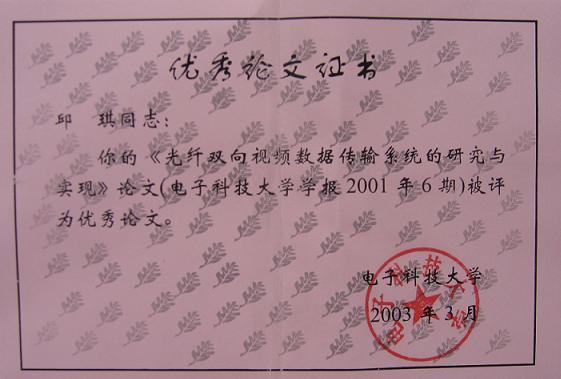 优秀论文证书
邱 琪同志:
你的《光纤双向视频数据传输系统的研究与
实现》论文(电子科技大学学报2001年6期)被评
为优秀论文。
电子科技大学
2003年3月
电子科技大学